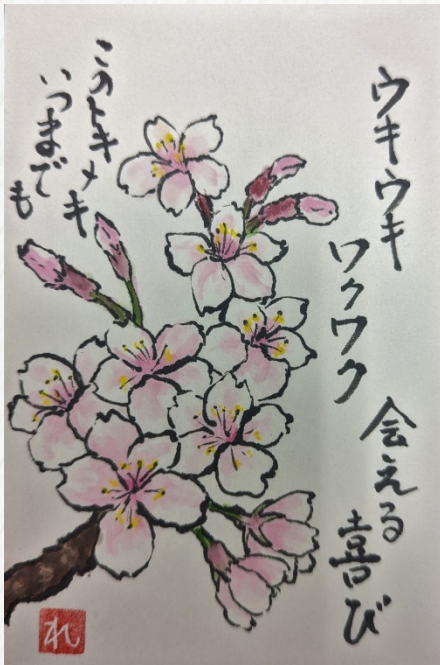 ウキウキ
ワクワク
会える喜び
このトキメキ
いつまでも
れ